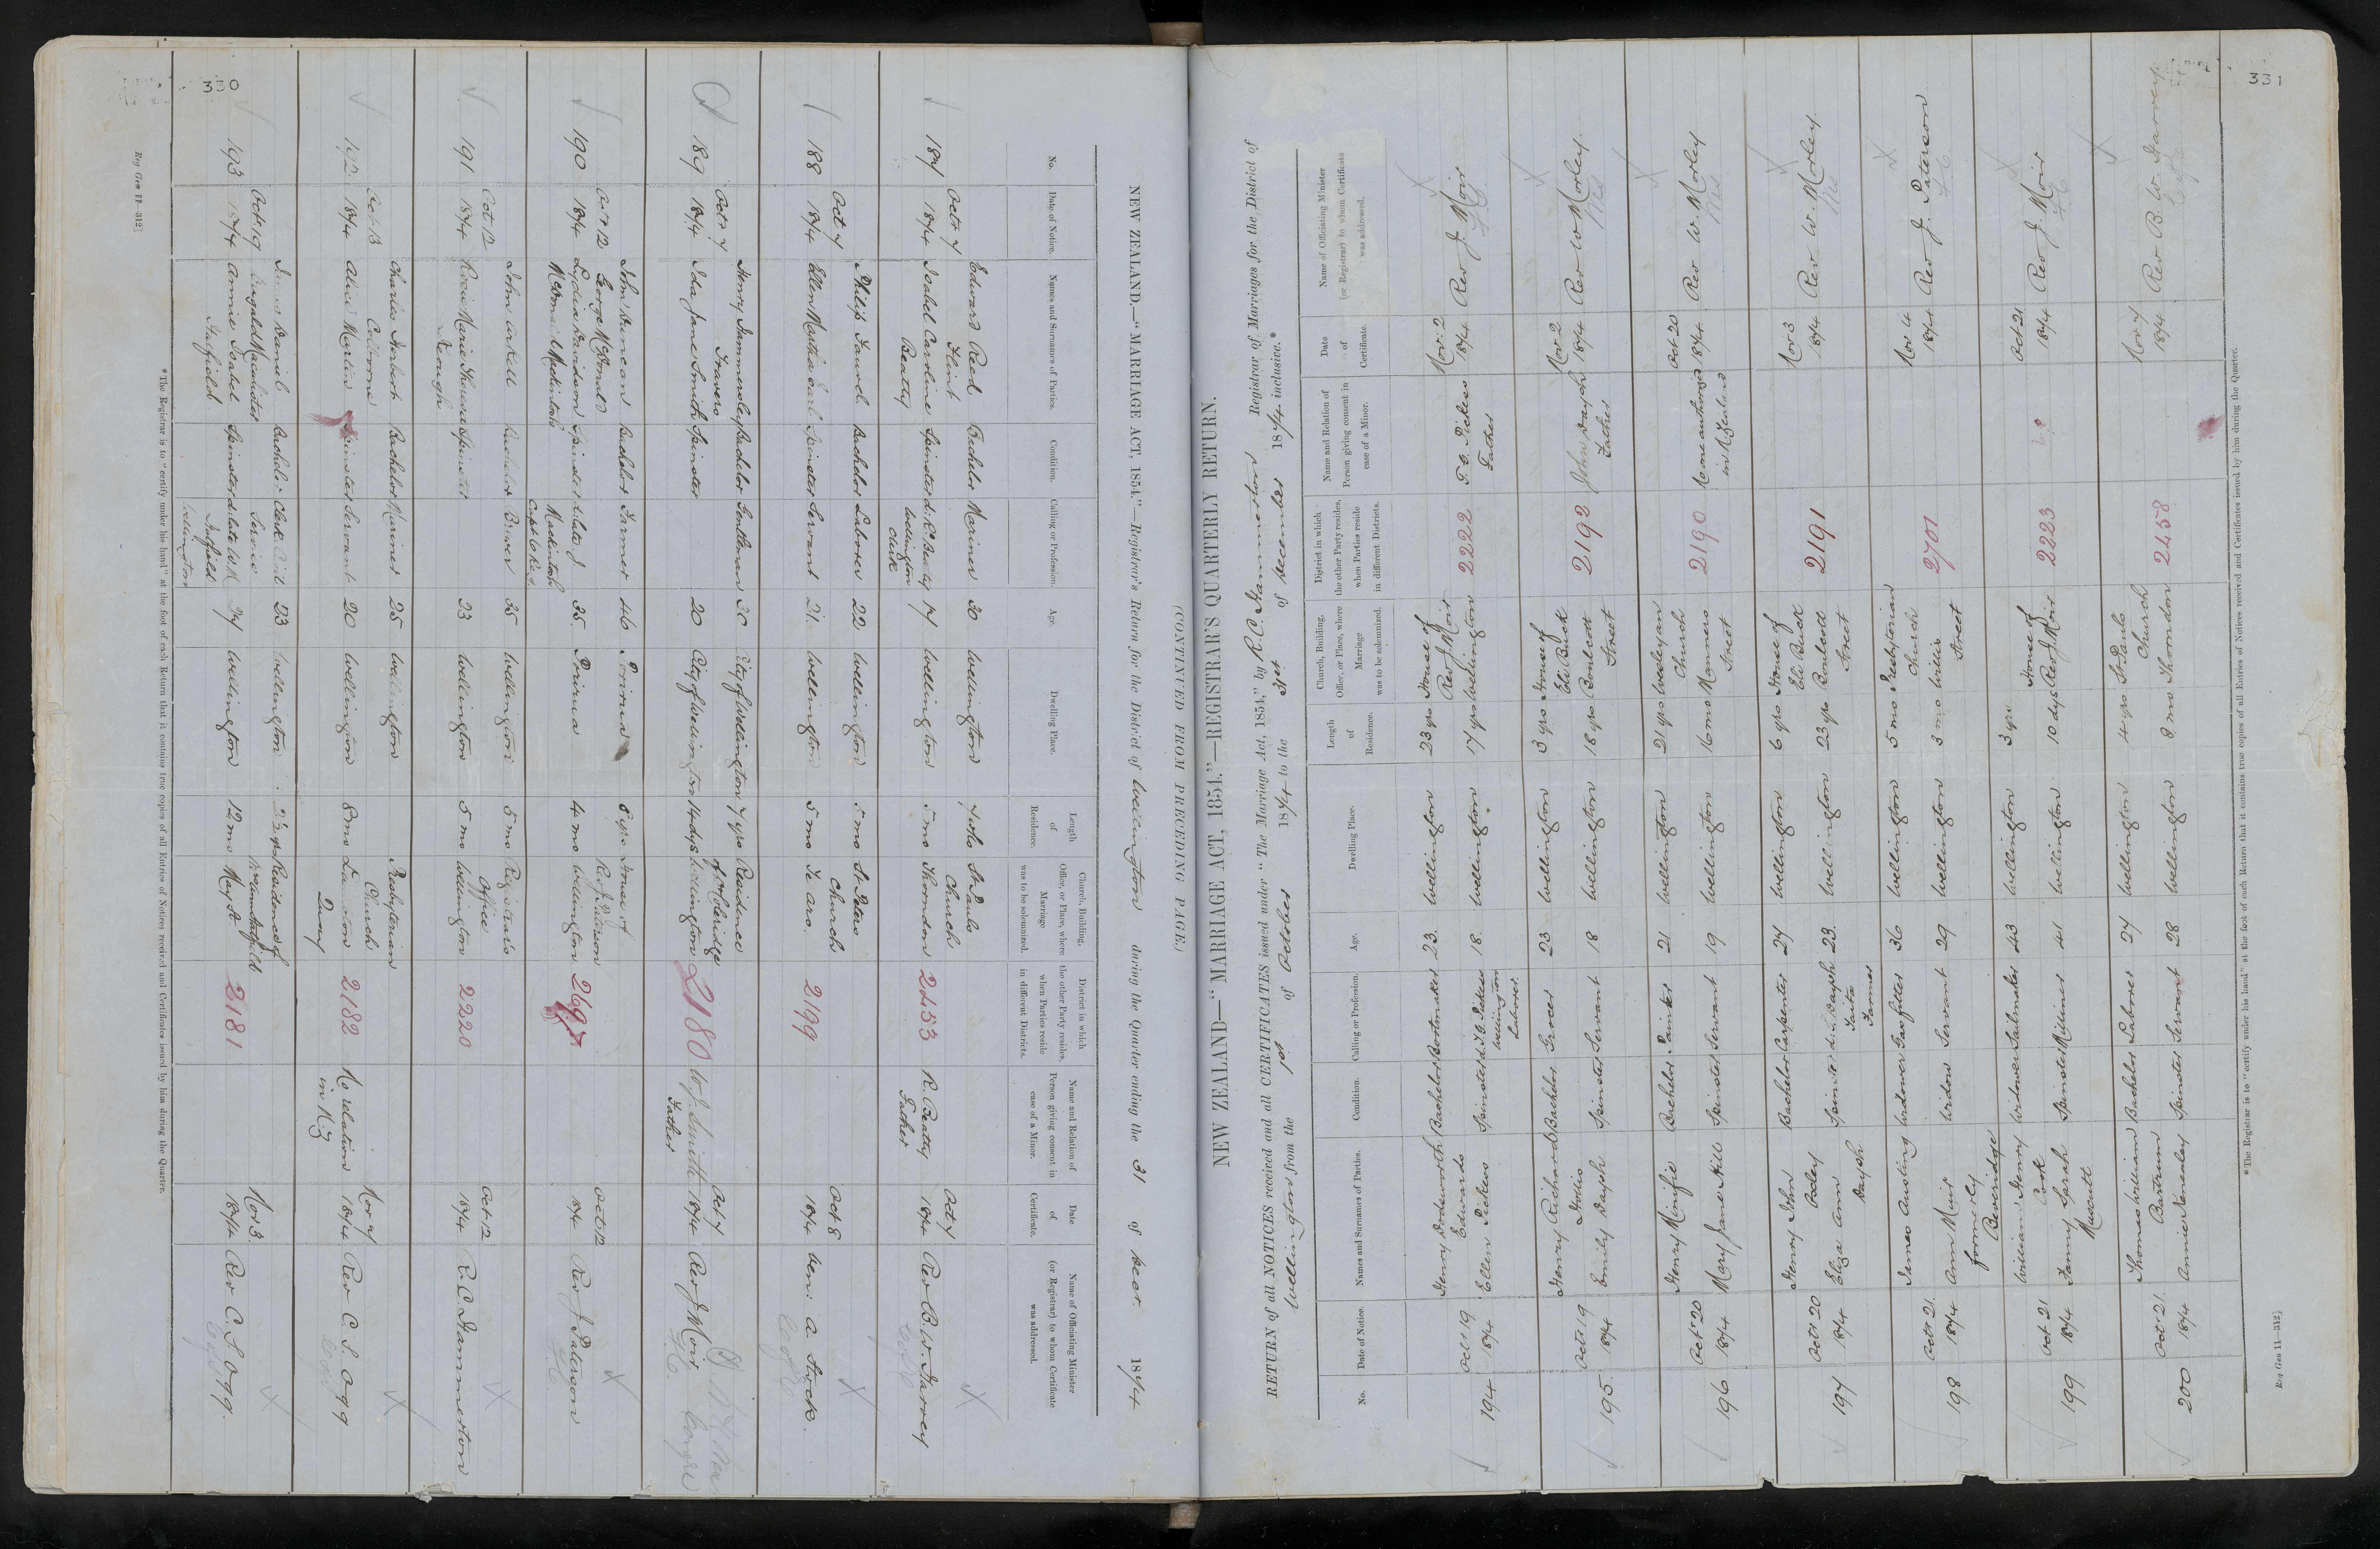 330
NEW ZEALAND.—"MARRIAGE ACT, 1854."—Registrar's Return for the District of Wellington during the Quarter ending the 31 of Decr. 1874
(CONTINUED FROM PRECEDING PAGE.)
No.
Date of Notice.
Names and Surnames of Parties.
Condition.
Calling or Profession.
Age.
Dwelling Place.
Length of Residence.
Church, Building, Office, or Place, where Marriage was to be solemnized.
District in which the other Party resides, when Parties reside in different Districts.
Name and Relation of Person giving consent in case of a Minor.
Date of Certificate.
Name of Officiating Minister (or Registrar) to whom Certificate was addressed.
Edward Reed Bachelor Mariner 30 Wellington St Pauls
Octr 7 Flint Church Oct 7
187 1874 Isabel Caroline Spinster d. R. Beatty 17 Wellington 5 mo Thorndon 2453 R. Beatty 1874 Rev B. W. Harvey
Beatty Wellington Clerk Father
Philip Bachelor Laborer 22 Wellington 5 mo St Peters
Oct 7 Church Oct 8
188 1874 Ellen Spinster Servant 21 Wellington 5 mo Te aro. 2199 1874 Ven: A. Stock.
Henry Hammersley Bachelor Gentleman 30 City of Wellington 7 yrs Residence
Octr 7 Travers of Coleridge Oct 7
189 1874 Ida Jane Smith Spinster 20 City of Wellington 14 dys Wellington 2180 W. J. Smith 1874 Rev J Moir
Father
John Duncan Bachelor Farmer 46 Porirua 8 yrs House of
Oct 12 George McDonald Rev J Paterson Oct 12
190 1874 Lydia Davidson Spinster d. late J 35 Porirua 4 mo Wellington 2697 1874 Rev J Paterson
McDonald Mackintosh Mackintosh
John Arkell Bachelor Brewer 35 Wellington 5 mo Registrar's
Oct 12 Office Oct 12
191 1874 Rosie Marie Theresa Spinster 23 Wellington 5 mo Wellington 2220 1874 R. C. Hammerton
Keough
Charles Herbert Bachelor Mariner 25 Wellington Presbyterian
Oct 13 Collborne Church Nov 7
192 1874 Alice Martin Spinster Servant 20 Wellington 8 mo Quay 2182 No relation in NZ 1874 Rev C. S. Ogg
James Daniel Bachelor Clerk Civil 23 Wellington Residence of
Oct 19 Dugald Macalister Service Nov 3
193 1874 Annie Isabel Spinster 24 Wellington 12 mo May St 2181 1874 Rev C. S. Ogg.
Hatfield Wellington
*The Registrar is to "certify under his hand" at the foot of each Return that it contains true copies of all Entries of Notices received and Certificates issued by him during the Quarter.
Reg Gen 11—312]
331
NEW ZEALAND—"MARRIAGE ACT, 1854."—REGISTRAR'S QUARTERLY RETURN.
RETURN of all NOTICES received and all CERTIFICATES issued under "The Marriage Act, 1854," by R. C. Hammerton Registrar of Marriages for the District of
Wellington from the 1st of October 1874 to the 31st of December 1874 inclusive.*
No.
Date of Notice.
Names and Surnames of Parties.
Condition.
Calling or Profession.
Age.
Dwelling Place.
Length of Residence.
Church, Building, Office, or Place, where Marriage was to be solemnized.
District in which the other Party resides, when Parties reside in different Districts.
Name and Relation of Person giving consent in case of a Minor.
Date of Certificate.
Name of Officiating Minister (or Registrar) to whom Certificate was addressed.
Henry Dodsworth Bachelor Bootmaker 23 Wellington 23 yrs House of
Octr 19 Edwards Rev J Moir Nov 2
194 1874 Ellen Pickess Spinster d. T. G. Pickess 18 Wellington 17 yrs Wellington 2222 T. G. Pickess 1874 Rev J. Moir
Wellington Laborer Father
Henry Richard Bachelor Grocer 23 Wellington 3 yrs House of
Octr 19 Hollis Eli Buck Nov 2
195 1874 Emily Dayph Spinster Servant 18 Wellington 18 yrs Boulcott Street 2192 John Dayph Father 1874 Rev W Morley.
Henry Minifie Bachelor Painter 21 Wellington 21 yrs Wesleyan
Octr 20 Church Oct 20
196 1874 Mary Jane Hill Spinster Servant 19 Wellington 16 mo Manners Street 2190 No one authorized in N. Zealand 1874 Rev W. Morley
Henry John Bachelor Carpenter 27 Wellington 6 yrs House of
Octr 20 Odley Eli Buck Nov 3
197 1874 Eliza Ann Spinster Dayph 23 Wellington 23 yrs Boulcott Street 2191 1874 Rev W. Morley.
Dayph Farmer
James Austing Widower Gasfitter 36 Wellington 5 mo Presbyterian
Octr 21 Church Nov 4
198 1874 Ann Muir Widow Servant 29 Wellington 3 mo Willis Street 2701 1874 Rev J. Paterson
formerly Beveridge
William Henry Widower Sailmaker 43 Wellington 3 yrs House of
Oct 21 Cook Rev J Moir Oct 21
199 1874 Fanny Sarah Spinster Milliner 41 Wellington 10 dys 2223 1874 Rev J. Moir
Muscutt
Thomas William Bachelor Laborer 27 Wellington 4 yrs St Pauls
Oct 21 Bartrum Church Nov 7
200 1874 Annie Kenealey Spinster Servant 28 Wellington 8 mo Thorndon 2458 1874 Rev B. W. Harvey
*The Registrar is to "certify under his hand" at the foot of each Return that it contains true copies of all Entries of Notices received and Certificates issued by him during the Quarter.
Reg Gen 11—312]